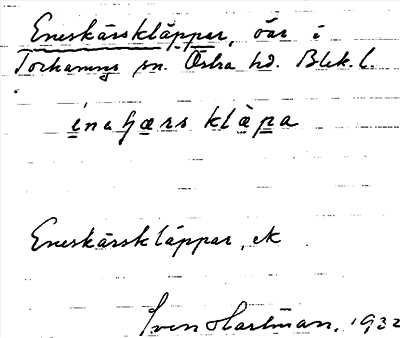 Eneskärskläppar, öar i
Torhamns sn. Östra hd. Blek. l.
enaʃærs klɛpa
Eneskärskläppar, ek
Sven Hartman, 1932